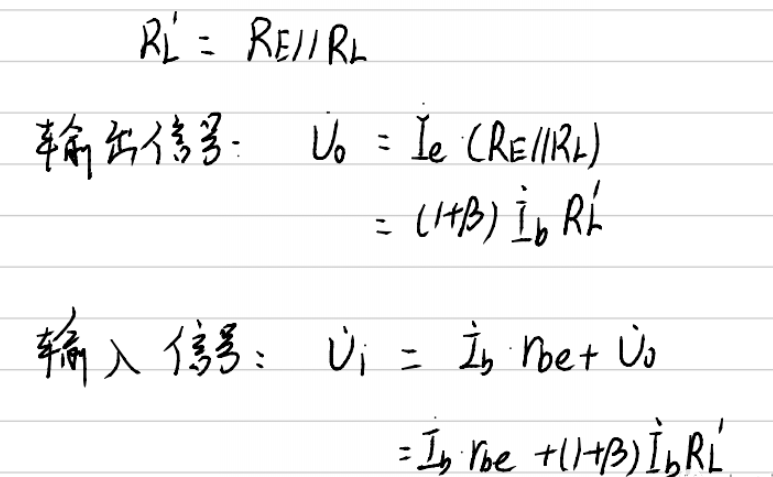 RL' = RE//RL
输出信号: U̇o = İe·(RE//RL)
= (1+β) İb RL'
输入信号: U̇i = İb·rbe + U̇o
= İb·rbe + (1+β) İb RL'